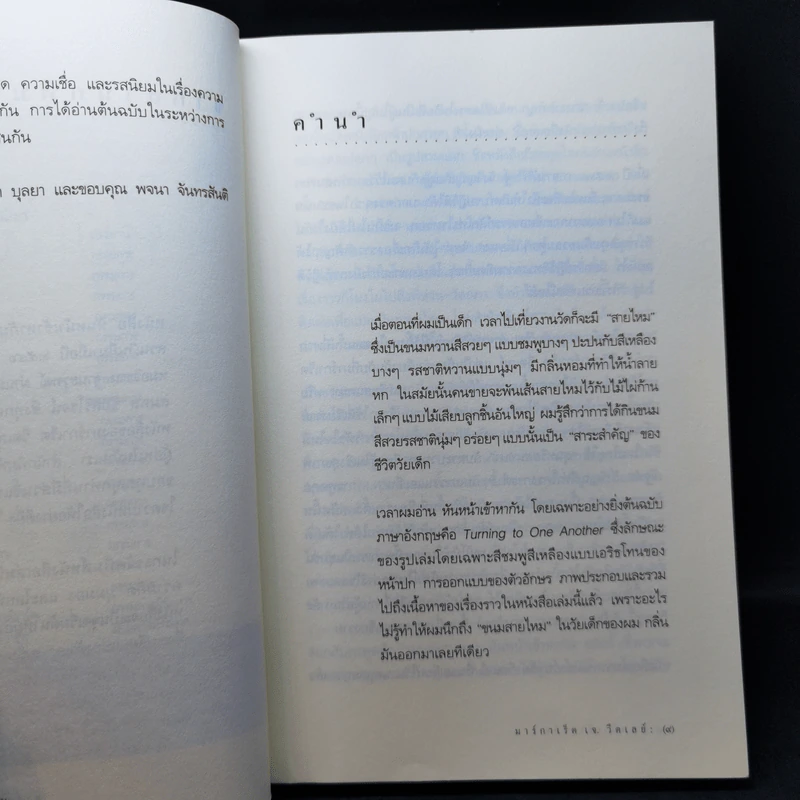 ด ความเชื่อ และรสนิยมในเรื่องความ
กัน การได้อ่านต้นฉบับในระหว่างการ
นกัน
บุลยา และขอบคุณ พจนา จันทรสันติ
คำนำ
เมื่อตอนที่ผมเป็นเด็ก เวลาไปเที่ยวงานวัดก็จะมี "สายไหม"
ซึ่งเป็นขนมหวานสีสวยๆ แบบชมพูบางๆ ปะปนกับสีเหลือง
บางๆ รสชาติหวานแบบนุ่มๆ มีกลิ่นหอมที่ทำให้น้ำลาย
หก ในสมัยนั้นคนขายจะพันเส้นสายไหมไว้กับไม้ไผ่ก้าน
เล็กๆ แบบไม้เสียบลูกชิ้นอันใหญ่ ผมรู้สึกว่าการได้กินขนม
สีสวยรสชาตินุ่มๆ อร่อยๆ แบบนั้นเป็น "สาระสำคัญ" ของ
ชีวิตวัยเด็ก
เวลาผมอ่าน หันหน้าเข้าหากัน โดยเฉพาะอย่างยิ่งต้นฉบับ
ภาษาอังกฤษคือ Turning to One Another ซึ่งลักษณะ
ของรูปเล่มโดยเฉพาะสีชมพูสีเหลืองแบบเอริธโทนของ
หน้าปก การออกแบบของตัวอักษร ภาพประกอบและรวม
ไปถึงเนื้อหาของเรื่องราวในหนังสือเล่มนี้แล้ว เพราะอะไร
ไม่รู้ทำให้ผมนึกถึง "ขนมสายไหม" ในวัยเด็กของผม กลิ่น
มันออกมาเลยทีเดียว
มาร์กาเร็ต เจ. วีตเลย์ : (๙)